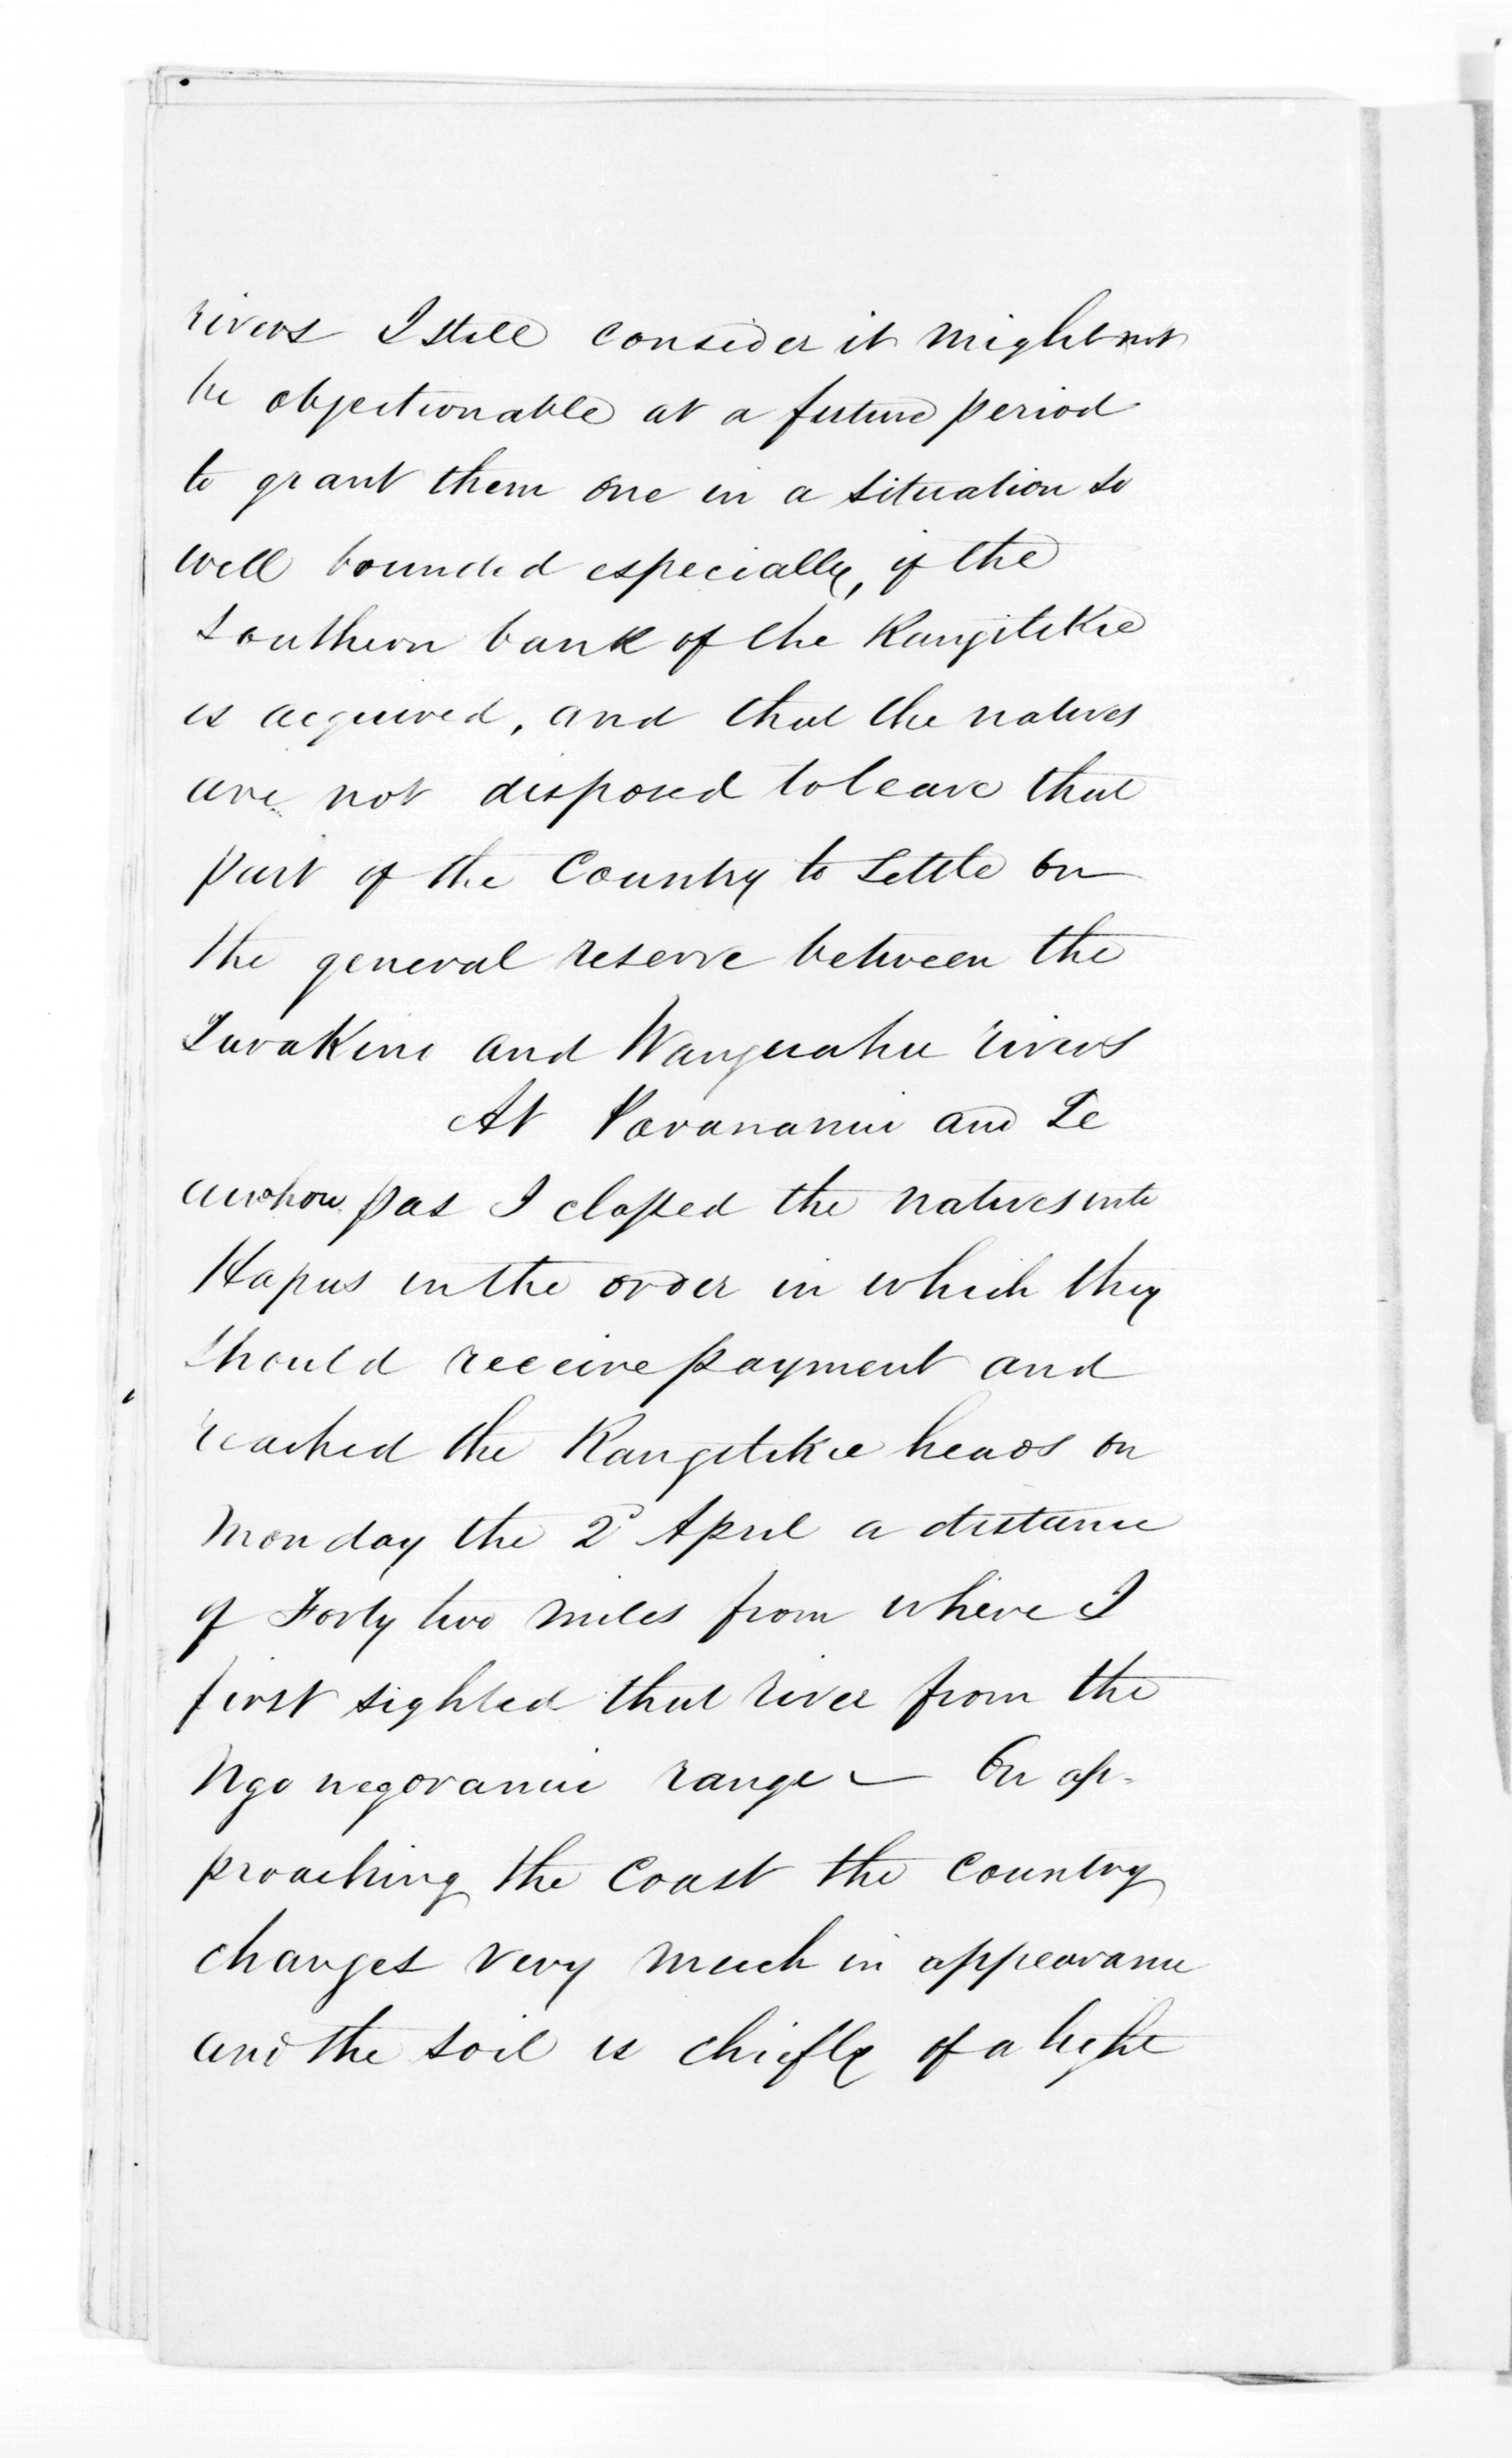 rivers I still consider it might not
be objectionable at a future period
to grant them one in a situation so
well bounded especially, if the
Southern bank of the Rangitikie
is acquired, and that the natives
are not disposed to leave that
part of the Country to Settle on
the general reserve between the
Turakino and Wanguahu rivers
At Pavanamui and Te
awahou pas I classed the natives into
Hapus in the order in which they
should receive payment and
reached the Rangitikie heads on
Monday the 2d April a distance
of Forty two miles from where I
first sighted that river from the
range — On ap-
proaching the Coast the Country
changes very much in appearance
and the soil is chiefly of a light